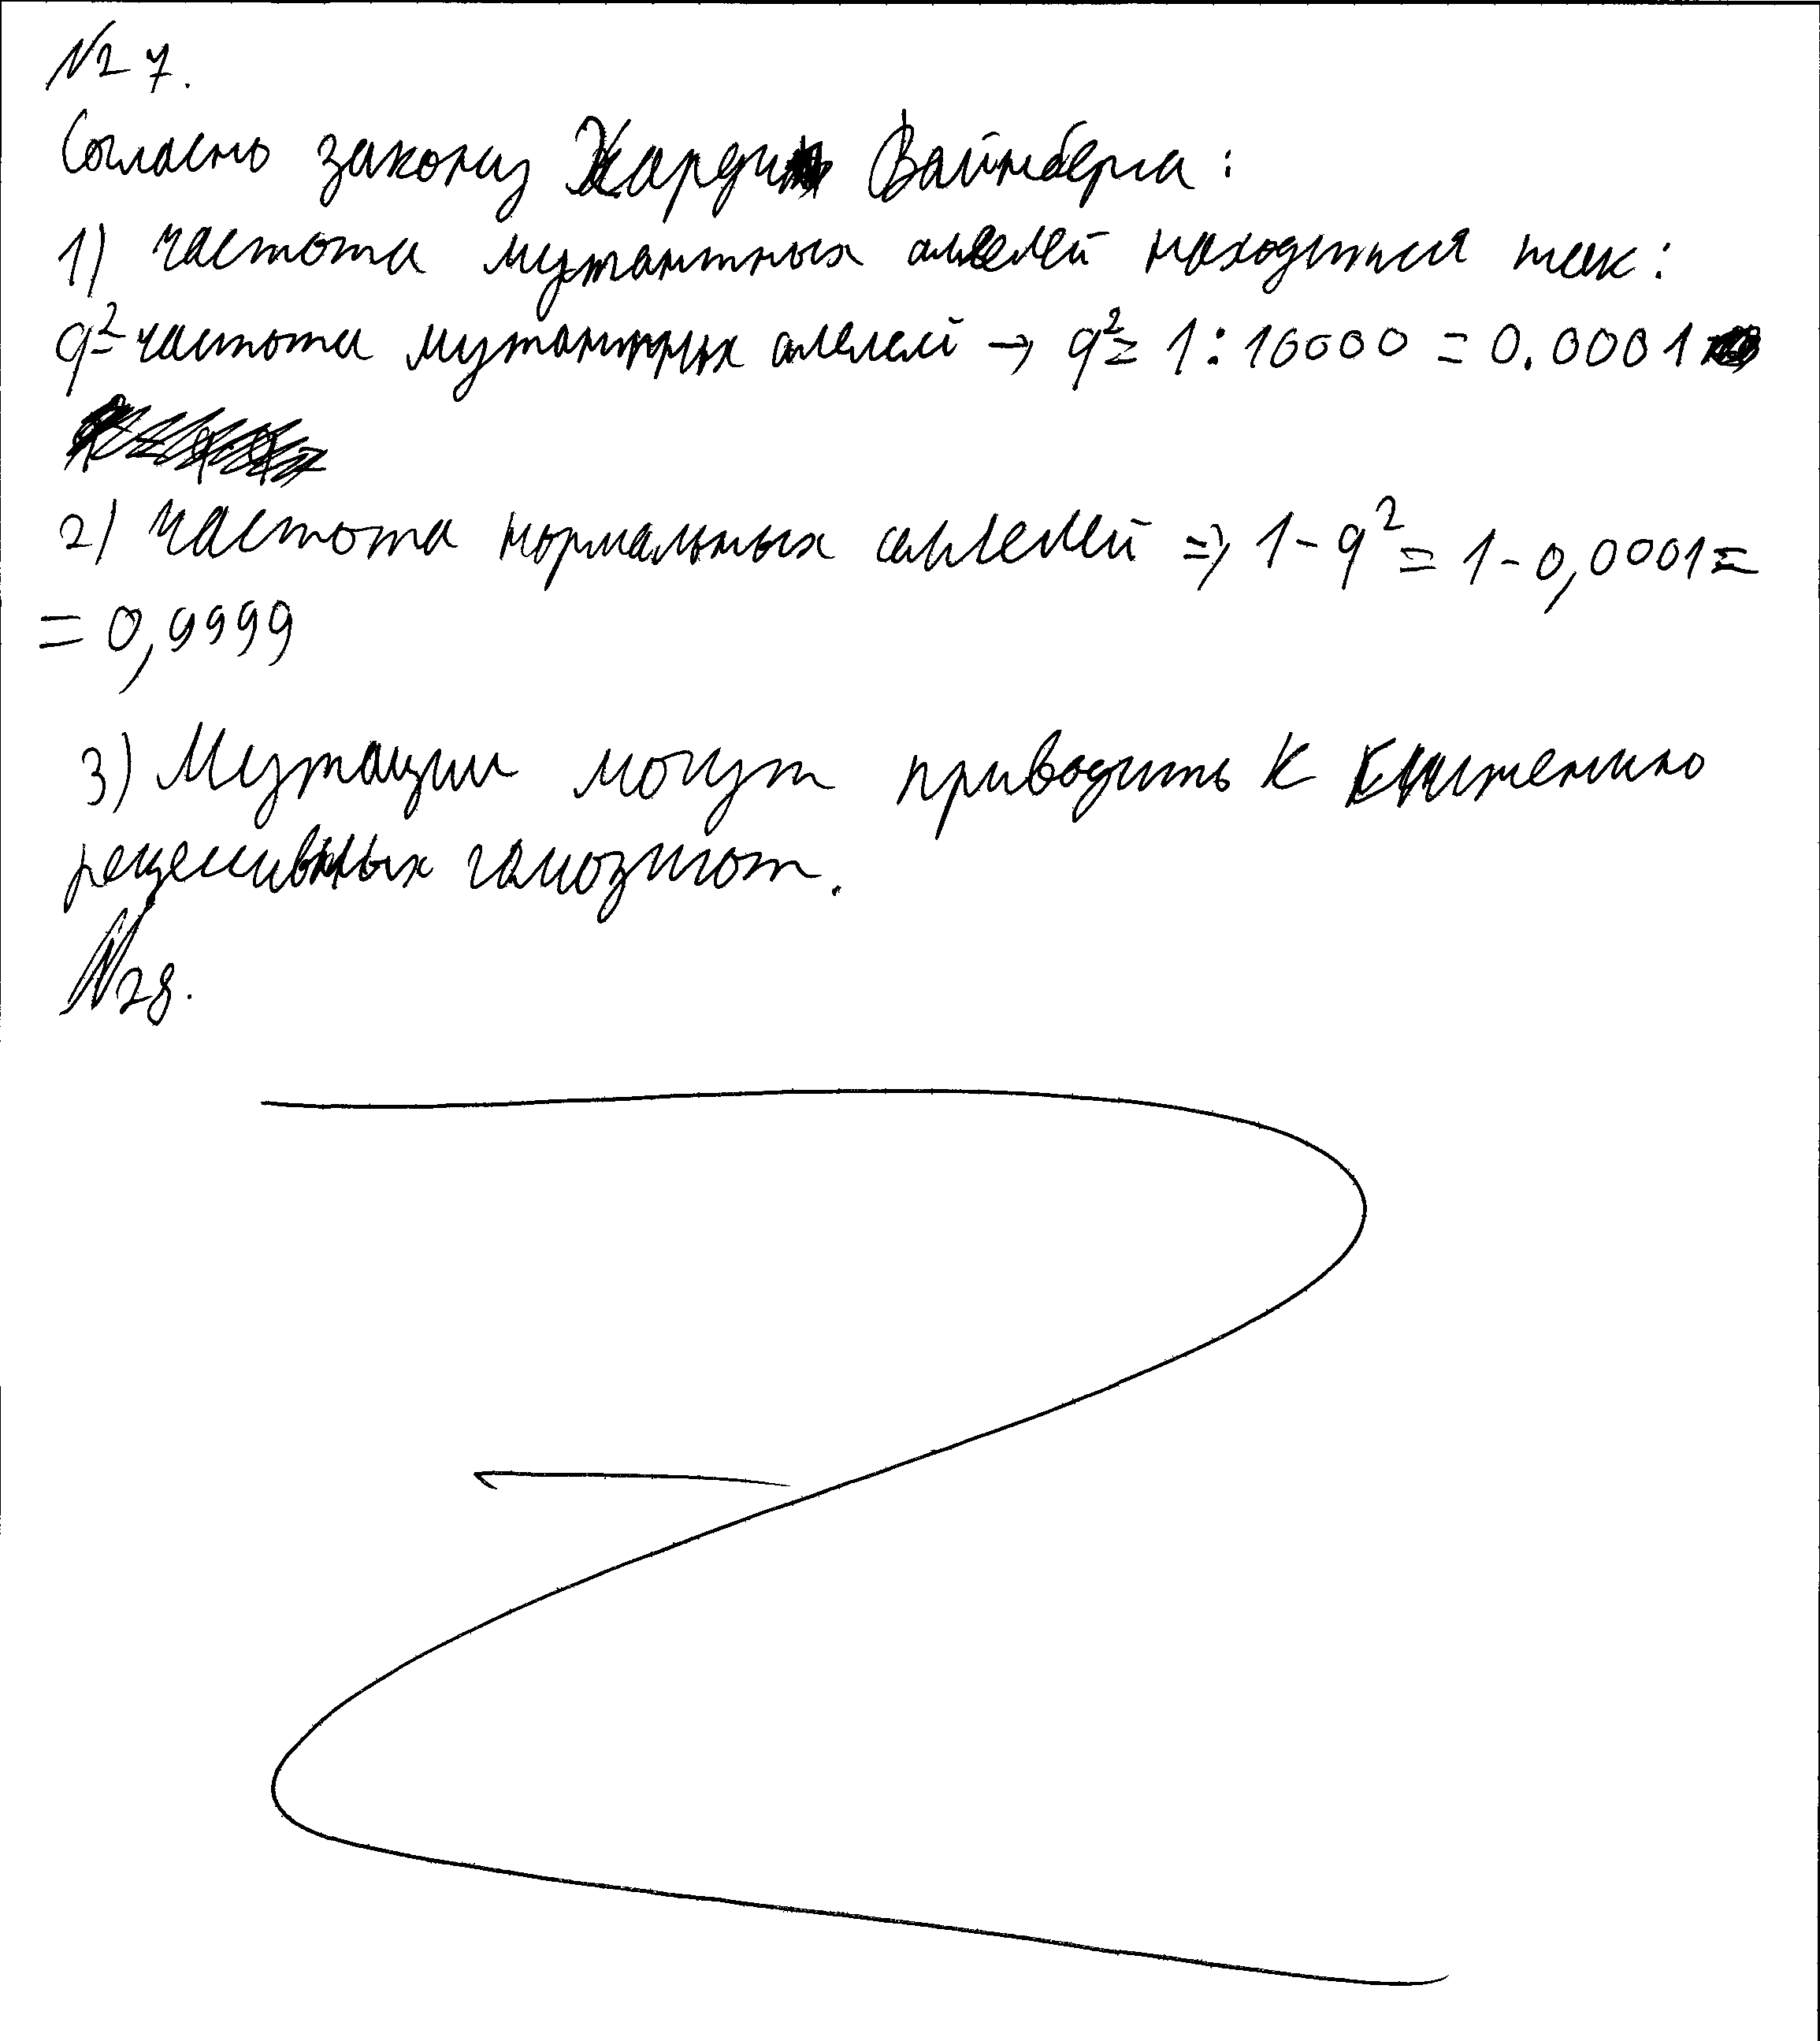 №27.
Согласно закону Харди Вайнберга:
1) частота мутантных аллелей находится так:
q²- частота мутантных аллелей → q² = 1 : 10000 = 0.0001
2) частота нормальных аллелей => 1 - q² = 1 - 0,0001 =
= 0,9999
3) Мутации могут приводить к снижению
рецессивных гомозигот.
№28.